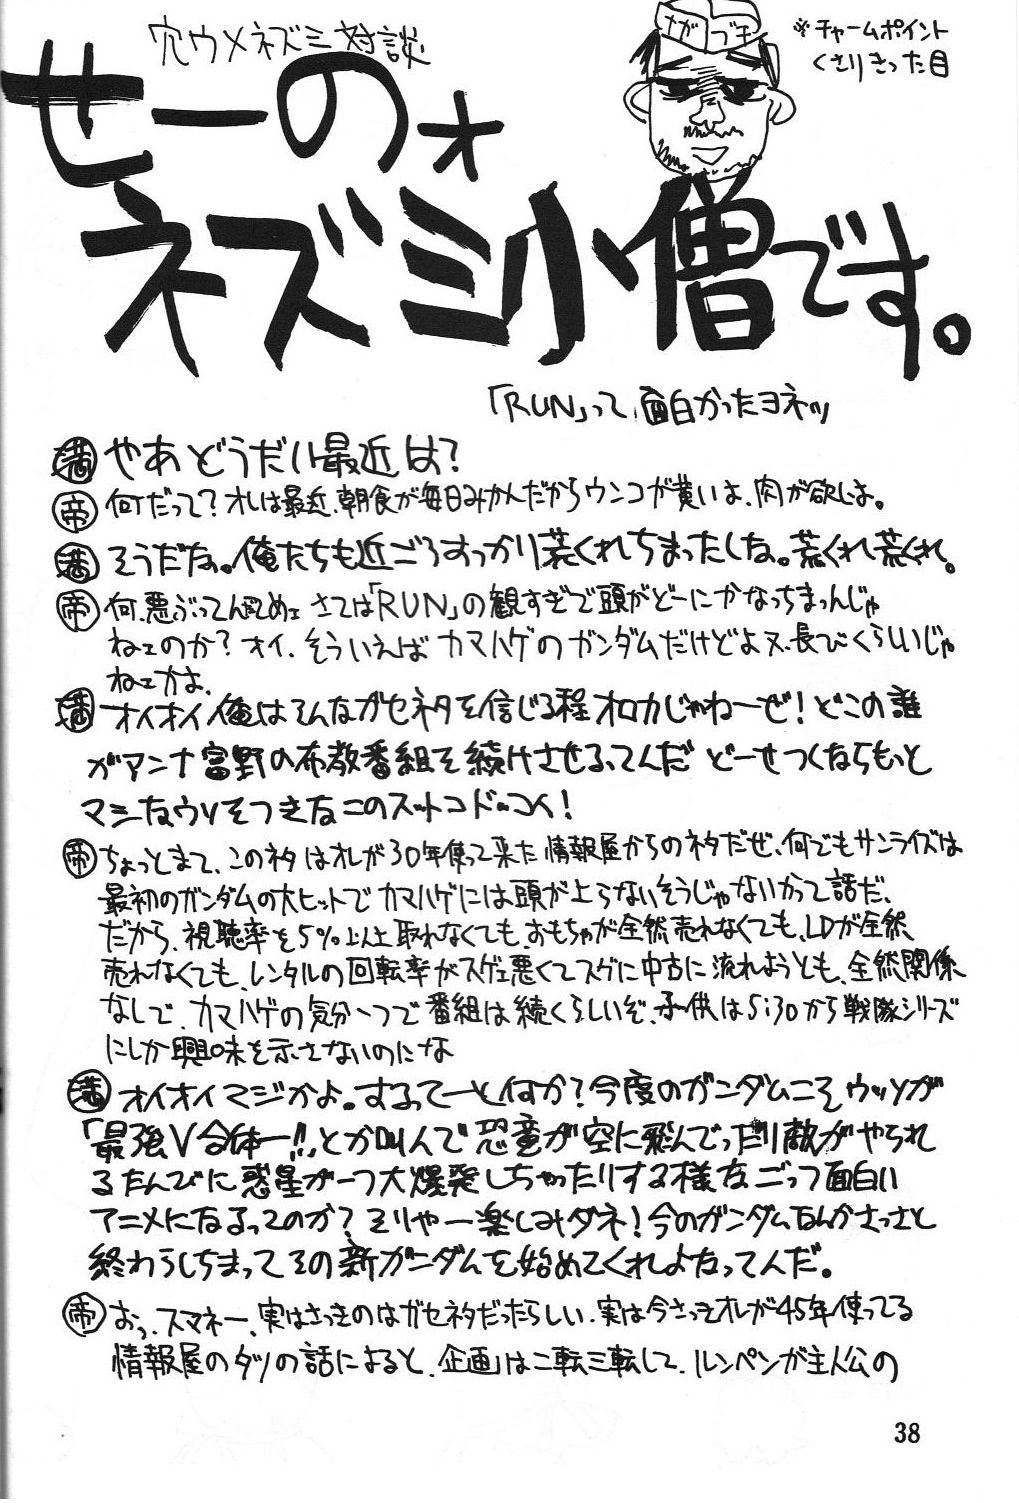 穴ウメネズミ対談
※チャームポイント
くさりきった目
ながブチ
せーのォ
ネズミ小僧です。
「RUN」って、面白かったヨネッ
満 やあどうだい最近は?
帝 何だって?オレは最近、朝食が毎日みかんだからウンコが黄いよ、肉が欲しいよ。
満 そうだな。俺たちも近ごろすっかり荒くれちまったしな。荒くれ荒くれ。
帝 何、悪ぶってんだてめェ さては「RUN」の観すぎで頭がどーにかなっちまったんじゃ
ねェのか?オイ、そういえばカマハゲのガンダムだけどよ又、長びくらしいじゃ
ねェかよ。
満 オイオイ俺はそんなガセネタを信じる程オロカじゃねーぜ!どこの誰
がアンナ富野の布教番組を続けさせるってんだ どーせつくならもっと
マシなウソをつきなこのスットコドッコイ!
帝 ちょっとまて、このネタはオレが30年使って来た情報屋からのネタだぜ、何でもサンライズは
最初のガンダムの大ヒットでカマハゲには頭が上らないそうじゃないかって話だ、
だから、視聴率を5%以上取れなくても、おもちゃが全然売れなくても、LDが全然
売れなくても、レンタルの回転率がスゲェ悪くてスグに中古に流れようとも、全然関係
なしで、カマハゲの気分一つで番組は続くらしいぞ、子供は5:30から戦隊シリーズ
にしか興味を示さないのにな
満 オイオイマジかよ。するってーと何か?今度のガンダムこそウッソが
「最強V合体ー!!」とか叫んで恐竜が空に飛んでったり敵がやられ
るたんびに惑星が一つ大爆発しちゃったりする様なごっつ面白い
アニメになるってのか?そりゃ一楽しみダネ!今のガンダムなんかさっさと
終わらしちまってその新ガンダムを始めてくれよなってんだ。
帝 おっ、スマネー、実はさっきのはガセネタだったらしい、実は今さっきオレが45年使ってる
情報屋のダツの話によると、企画は二転三転して、ルンペンが主人公の
38